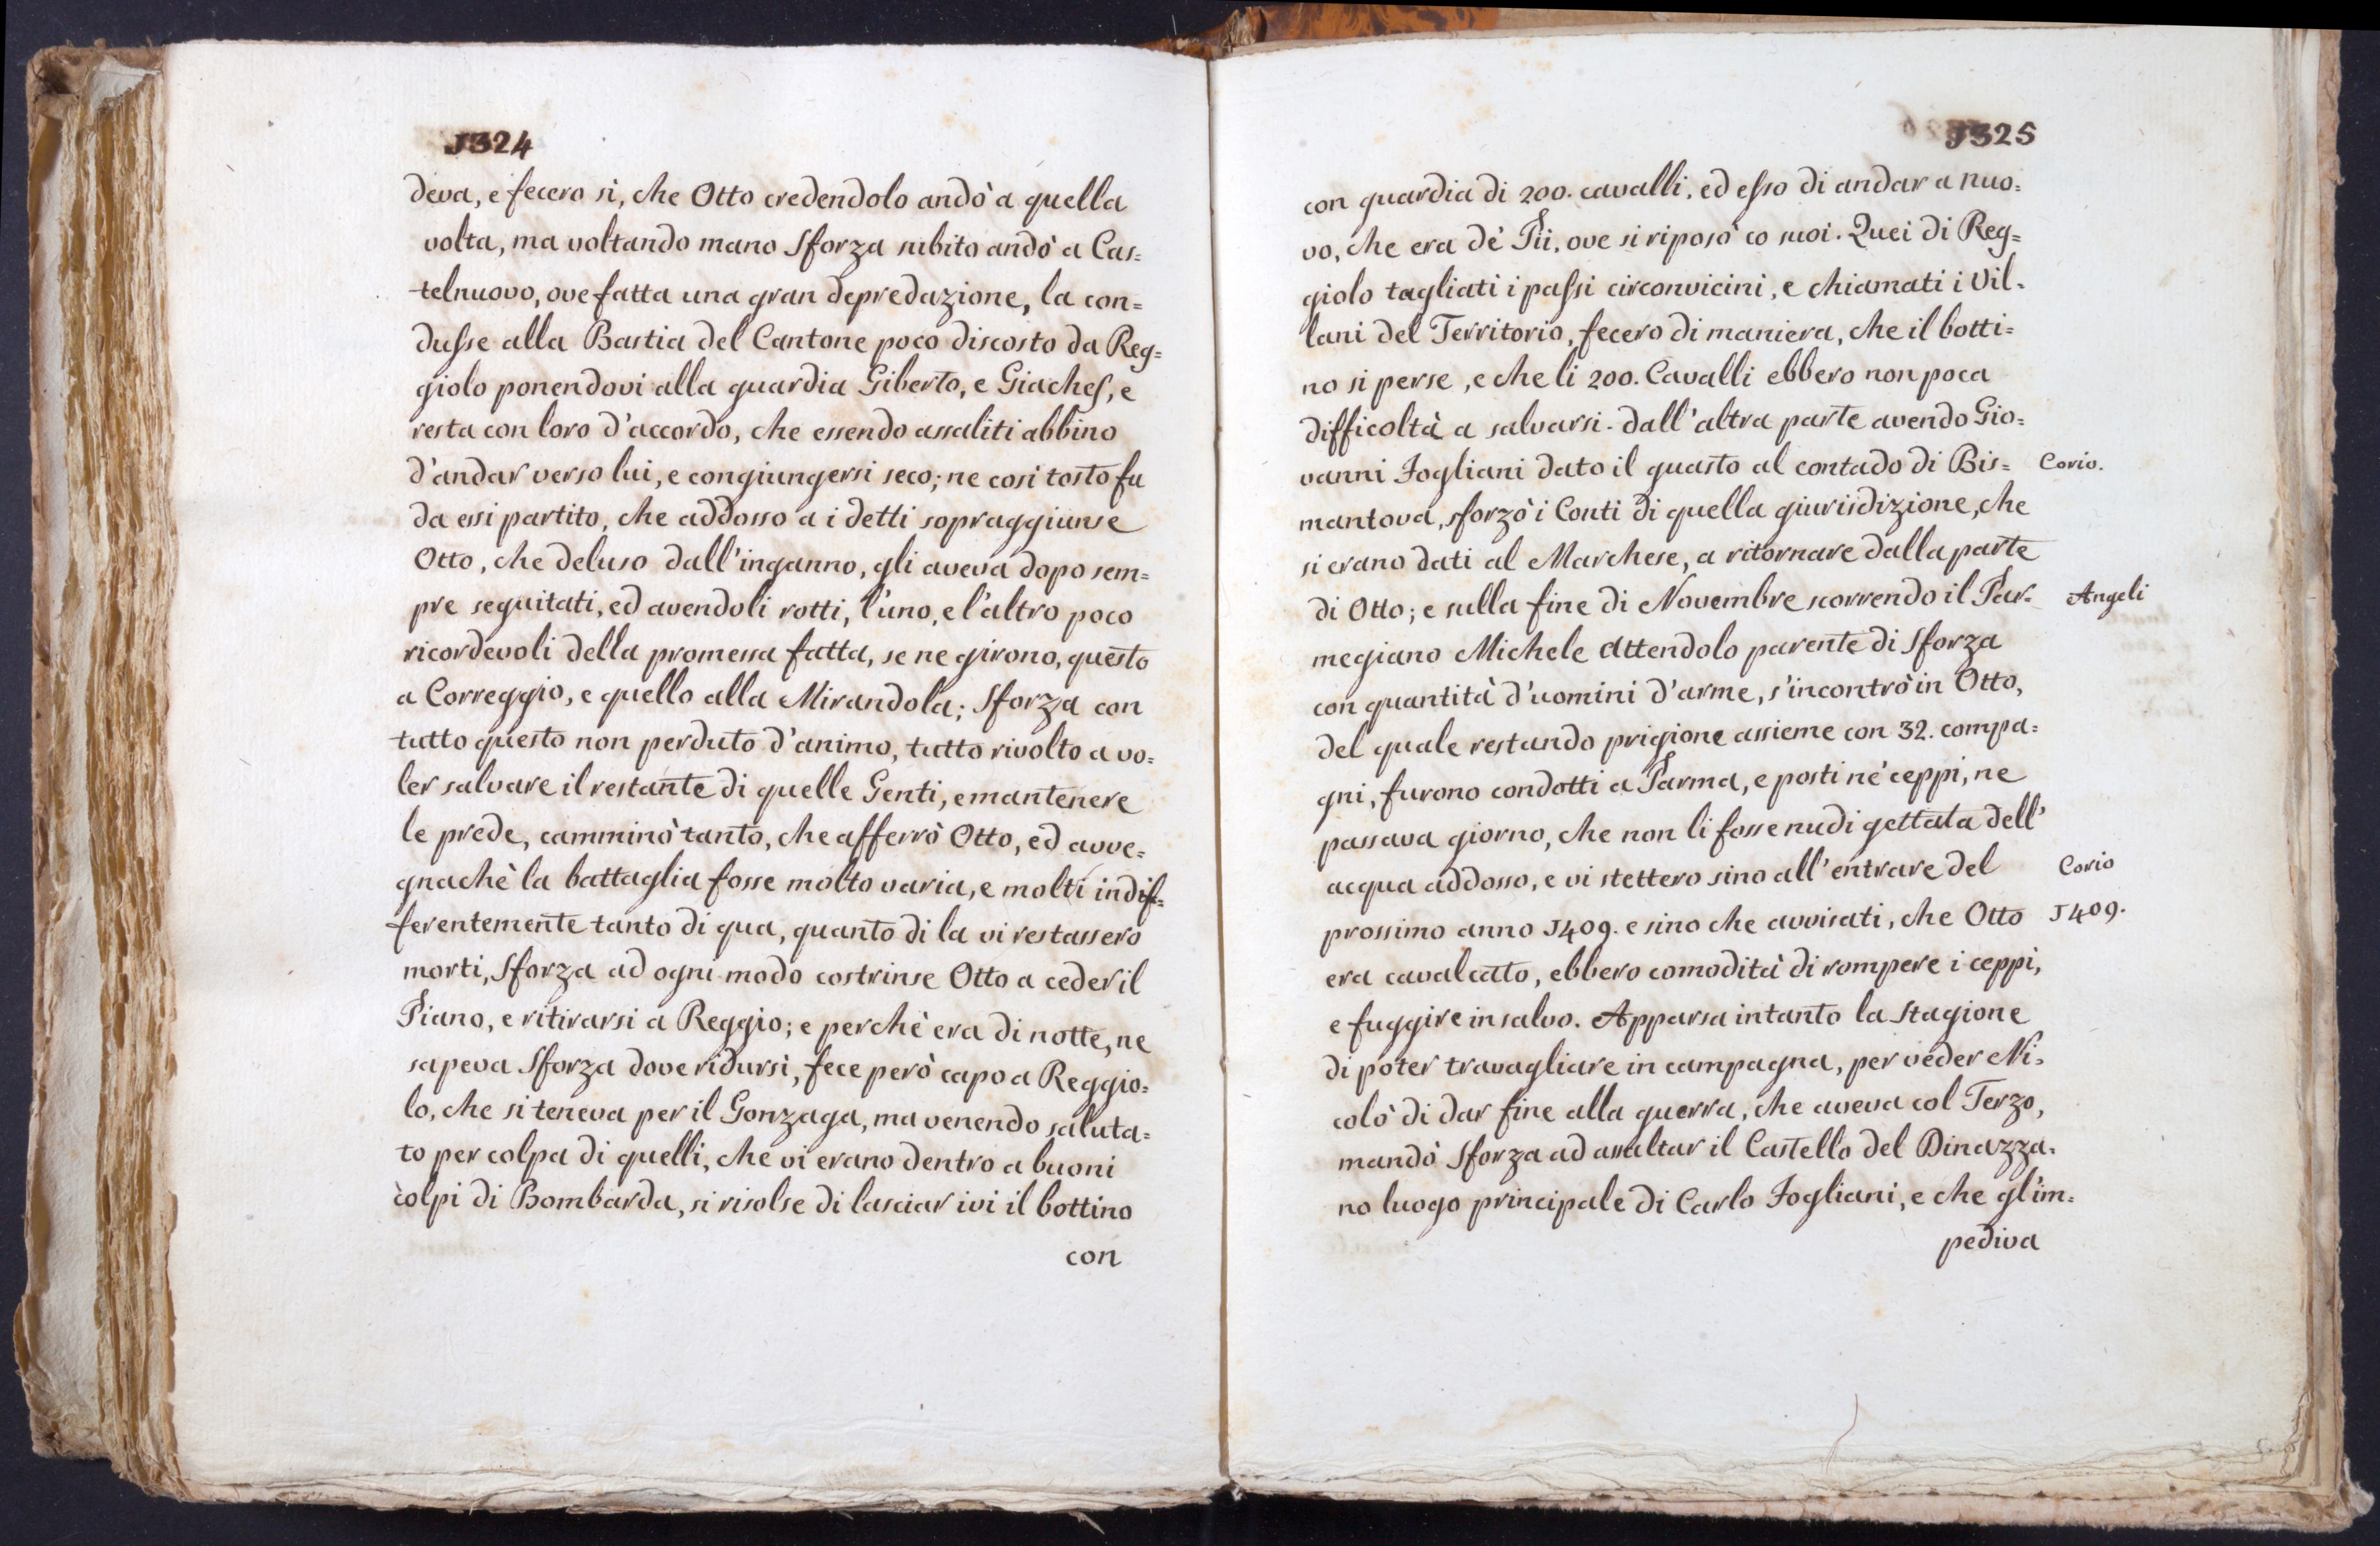 1324
deva, e fecero sì, che Otto credendolo andò a quella
volta, ma voltando mano Sforza subito andò a Cas=
telnuovo, ove fatta una gran depredazione, la con=
dusse alla Bastia del Cantone poco discosto da Reg=
giolo ponendovi alla guardia Giberto, e Giaches, e
resta con loro d'accordo, che essendo assaliti abbino
d'andar verso lui, e congiungersi seco; ne così tosto fu
da essi partito, che addosso a i detti sopraggiunse
Otto, che deluso dall'inganno, gli aveva dopo sem=
pre seguitati, ed avendoli rotti, l'uno, e l'altro poco
ricordevoli della promessa fatta, se ne girono, questo
a Correggio, e quello alla Mirandola; Sforza con
tutto questo non perduto d'animo, tutto rivolto a vo=
ler salvare il restante di quelle Genti, e mantenere
le prede, camminò tanto, che afferrò Otto, ed avve=
gnachè la battaglia fosse molto varia, e molti indif=
ferentemente tanto di qua, quanto di la vi restassero
morti, Sforza ad ogni modo costrinse Otto a ceder il
Piano, e ritirarsi a Reggio; e perchè era di notte, ne
sapeva Sforza dove ridursi, fece però capo a Reggio=
lo, che si teneva per il Gonzaga, ma venendo saluta=
to per colpa di quelli, che vi erano dentro a buoni
colpi di Bombarda, si risolse di lasciar ivi il bottino
con
1325
con guardia di 200. cavalli, ed esso di andar a nuo=
vo, che era dè Pii, ove si riposò co suoi. Quei di Reg=
giolo tagliati i passi circonvicini, e chiamati i Vil=
lani del Territorio, fecero di maniera, che il botti=
no si perse, e che li 200. Cavalli ebbero non poca
difficoltà a salvarsi. dall'altra parte avendo Gio=
vanni Fogliani dato il guasto al contado di Bis= Corio.
mantova, sforzò i Conti di quella giurisdizione, che
si erano dati al Marchese, a ritornare dalla parte
di Otto; e sulla fine di Novembre scorrendo il Par= Angeli
megiano Michele Attendolo parente di Sforza
con quantità d'uomini d'arme, s'incontrò in Otto,
del quale restando prigione assieme con 32. compa=
gni, furono condotti a Parma, e posti ne' ceppi, ne
passava giorno, che non li fosse nudi gettata dell'
acqua addosso, e vi stettero sino all'entrare del Corio
prossimo anno 1409. e sino che avvisati, che Otto 1409.
era cavalcato, ebbero comodità di rompere i ceppi,
e fuggire in salvo. Apparsa intanto la Stagione
di poter travagliare in campagna, per veder Ni=
colò di dar fine alla guerra, che aveva col Terzo,
mandò Sforza ad assaltar il Castello del Dinazza=
no luogo principale di Carlo Fogliani, e che gl'im=
pediva